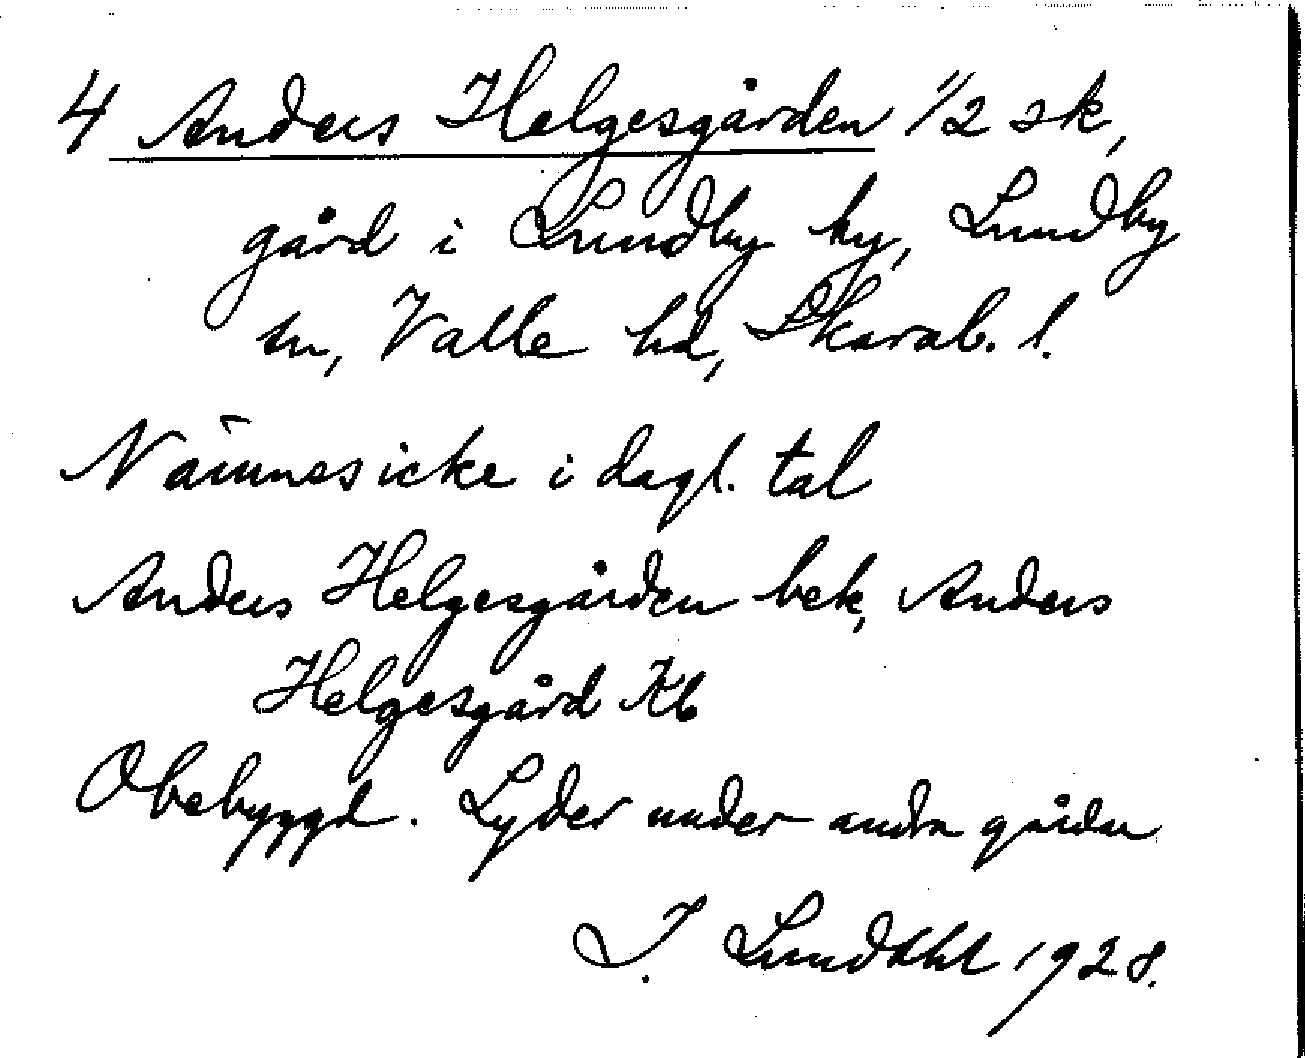 4 Anders Helgesgården 1/2 sk,
gård i Lundby by, Lundby
sn, Valle hd, Skarab. l.
Nämnes icke i dagl. tal
Anders Helgesgården bek, Anders
Helgesgård Kb
Obebyggd. Lyder under andra gårdar
I. Lundahl 1928.